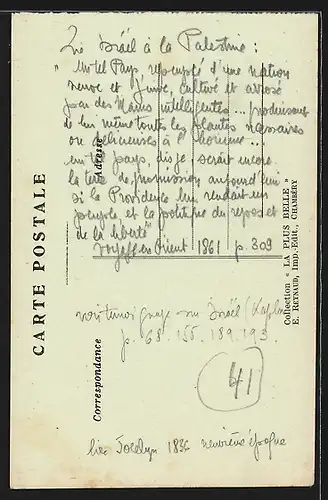 d'Israël à la Palestine :
" Un tel Pays, repeuplé d'une nation
neuve et Juive, cultivé et arrosé
par des Mains intelligentes... produisant
de lui même toutes les plantes nécessaires
ou délicieuses à l'homme...
un tel pays, dis-je, serait encore
la terre de promission aujourd'hui
si la Providence lui rendait un
peuple et la politique du repos et
de la liberté"
Voyage en Orient 1861 p. 309
voir témoignage sur Israël (Kaplan
p. 68. 155. 189. 193.
41
lire Jocelyn 1836 neuvième époque
CARTE POSTALE
Adresse
Correspondance
Collection « LA PLUS BELLE »
E. REYNAUD, Imp.-Édit., CHAMBÉRY